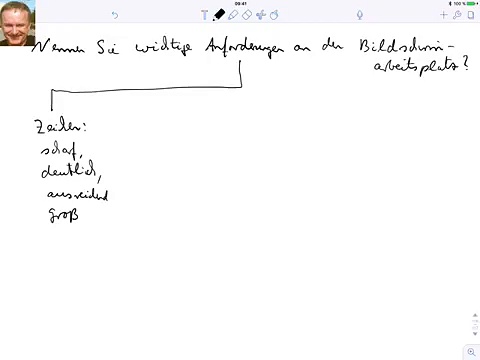 09:41
100 %
Nennen Sie wichtige Anforderungen an den Bildschirm-
arbeitsplatz?
Zeichen:
scharf,
deutlich,
ausreichend
groß